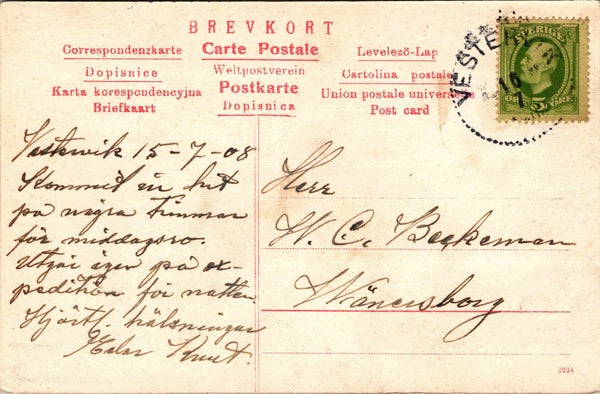 BREVKORT
Correspondenzkarte
Carte Postale
Levelező-Lap
Dopisnice
Weltpostverein
Cartolina postale
Karta korespondencyjna
Postkarte
Union postale universelle
Briefkaart
Dopisnica
Post card
SVERIGE
5 ÖRE
VESTER
Vestervik 15-7-08
Kommit in hit
på några timmar
för middagsro.
Utgår igen på ex-
pedition för natten.
Hjärtl. hälsningar
Knut.
Herr
W. C. Beckeman
Wänersborg
3924